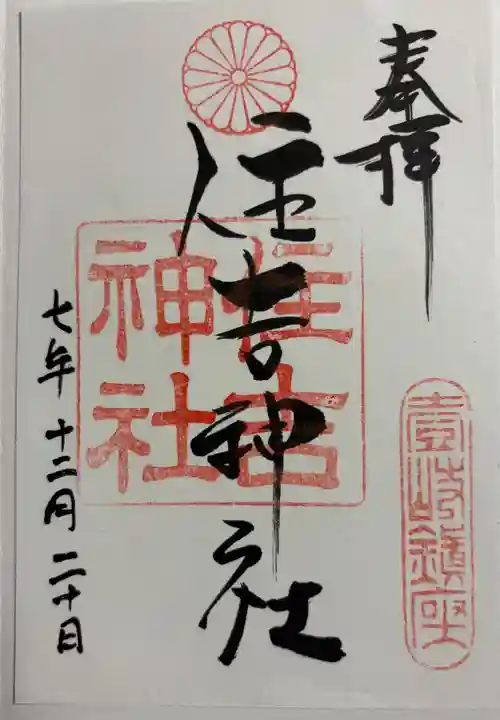 奉拝
住吉神社
住吉
神社
壱岐鎮座
七年十二月二十日